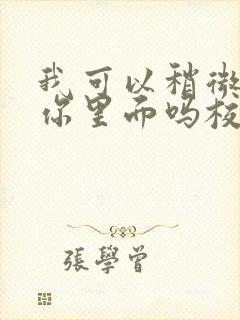 我可以稍微
你里而吗板
張學曾